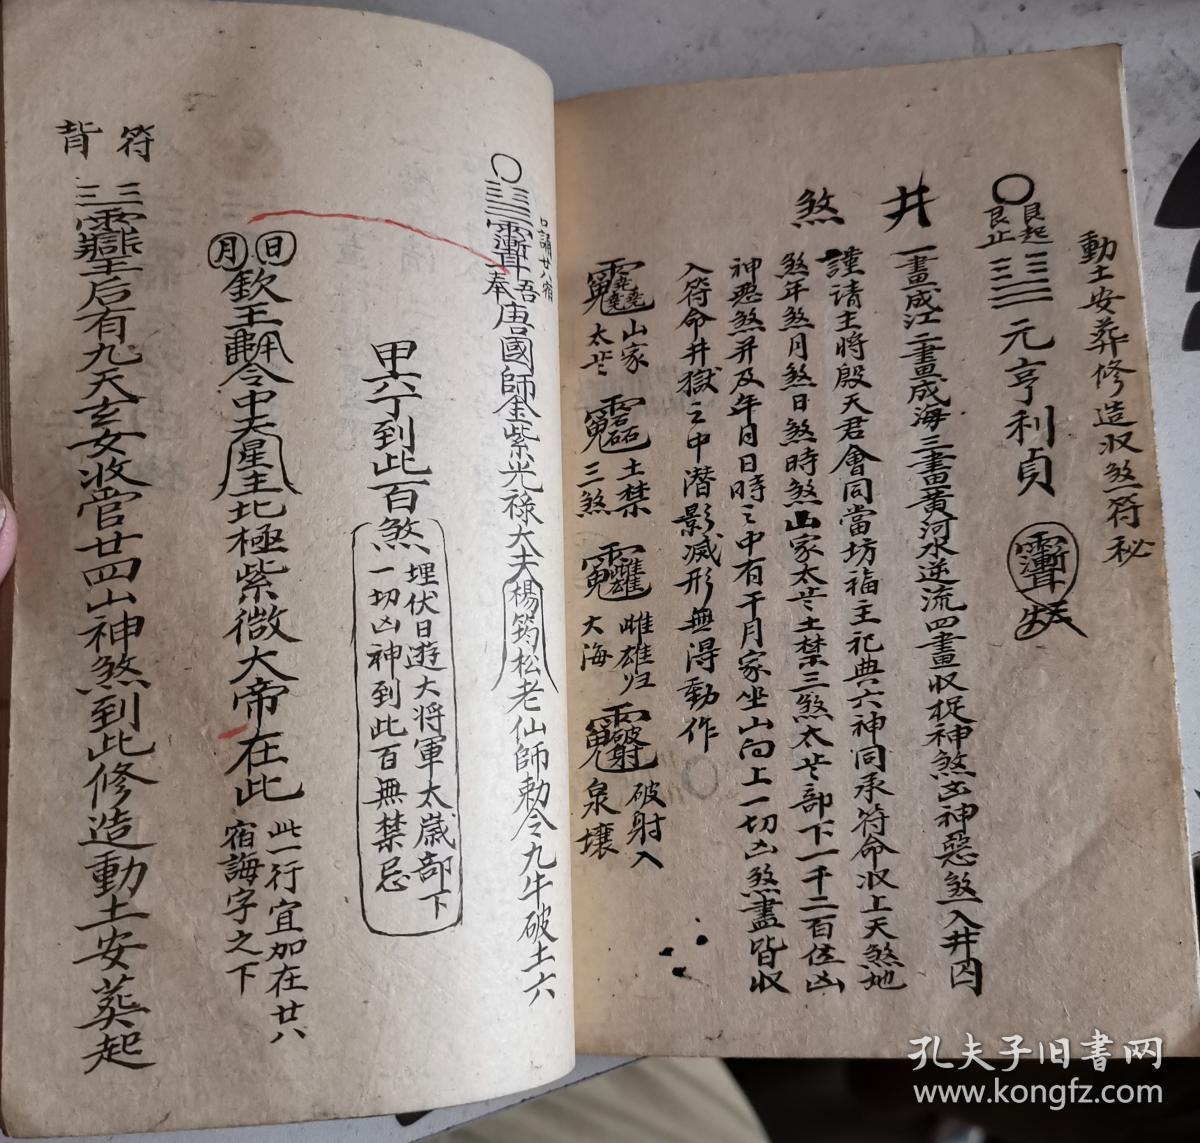 動土安葬修造収煞一符秘
艮起
艮止
元亨利貞
井
一畫成江二畫成海三畫黃河水逆流四畫収捉神煞凶神惡煞入井囚
煞
謹请主將殷天君會同當坊福主祀典六神同承符命収上天煞地
煞年煞月煞日煞時煞山家太岁土禁三煞太岁部下一千二百位凶
神恶煞并及年月日時之中有千月家坐山向上一切凶煞盡皆収
入符命井獄之中潜影滅形無得動作
山家
太岁
土禁
三煞
雌雄归
大海
破射入
泉壤
口誦廿八宿
吾奉
唐國師金紫光祿大夫楊筠松老仙師勅令九牛破土六
甲六丁到此百煞
埋伏日遊大将軍太歲部下
一切凶神到此百無禁忌
日
月
欽王
令中天星主北極紫微大帝在此
此一行宜加在廿八
宿諱字之下
符
背
后有九天玄女收管廿四山神煞到此修造動土安葬起
孔夫子旧書网
www.kongfz.com